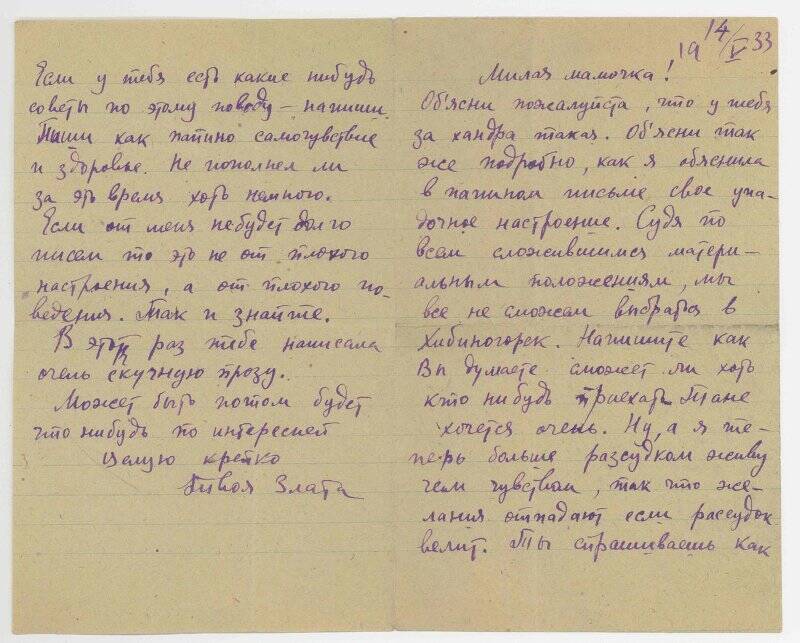 19 14/V 33
Милая мамочка!
Об'ясни пожалуйста, что у тебя
за хандра такая. Об'ясни так
же подробно, как я обяснила
в папином письме свое упа-
дочное настроение. Судя по
всем сложившимся матери-
альным положениям, мы
все не сможем выбраться в
Хибиногорск. Напишите как
Вы думаете сможет ли хоть
кто нибудь приехать. Тане
хочется очень. Ну, а я те-
перь больше рассудком живу
чем чувством, так что же-
лания отпадают если рассудок
велит. Ты спрашиваешь как
Если у тебя есть какие нибудь
советы по этому поводу – напиши.
Пиши как папино самочувствие
и здоровье. Не пополнел ли
за это время хоть немного.
Если от меня небудет долго
писем то это не от плохого
настроения, а от плохого по-
ведения. Так и знайте.
В этот раз тебе написала
очень скучную прозу.
Может быть потом будет
что нибудь по интересней
Целую крепко
Твоя Злата